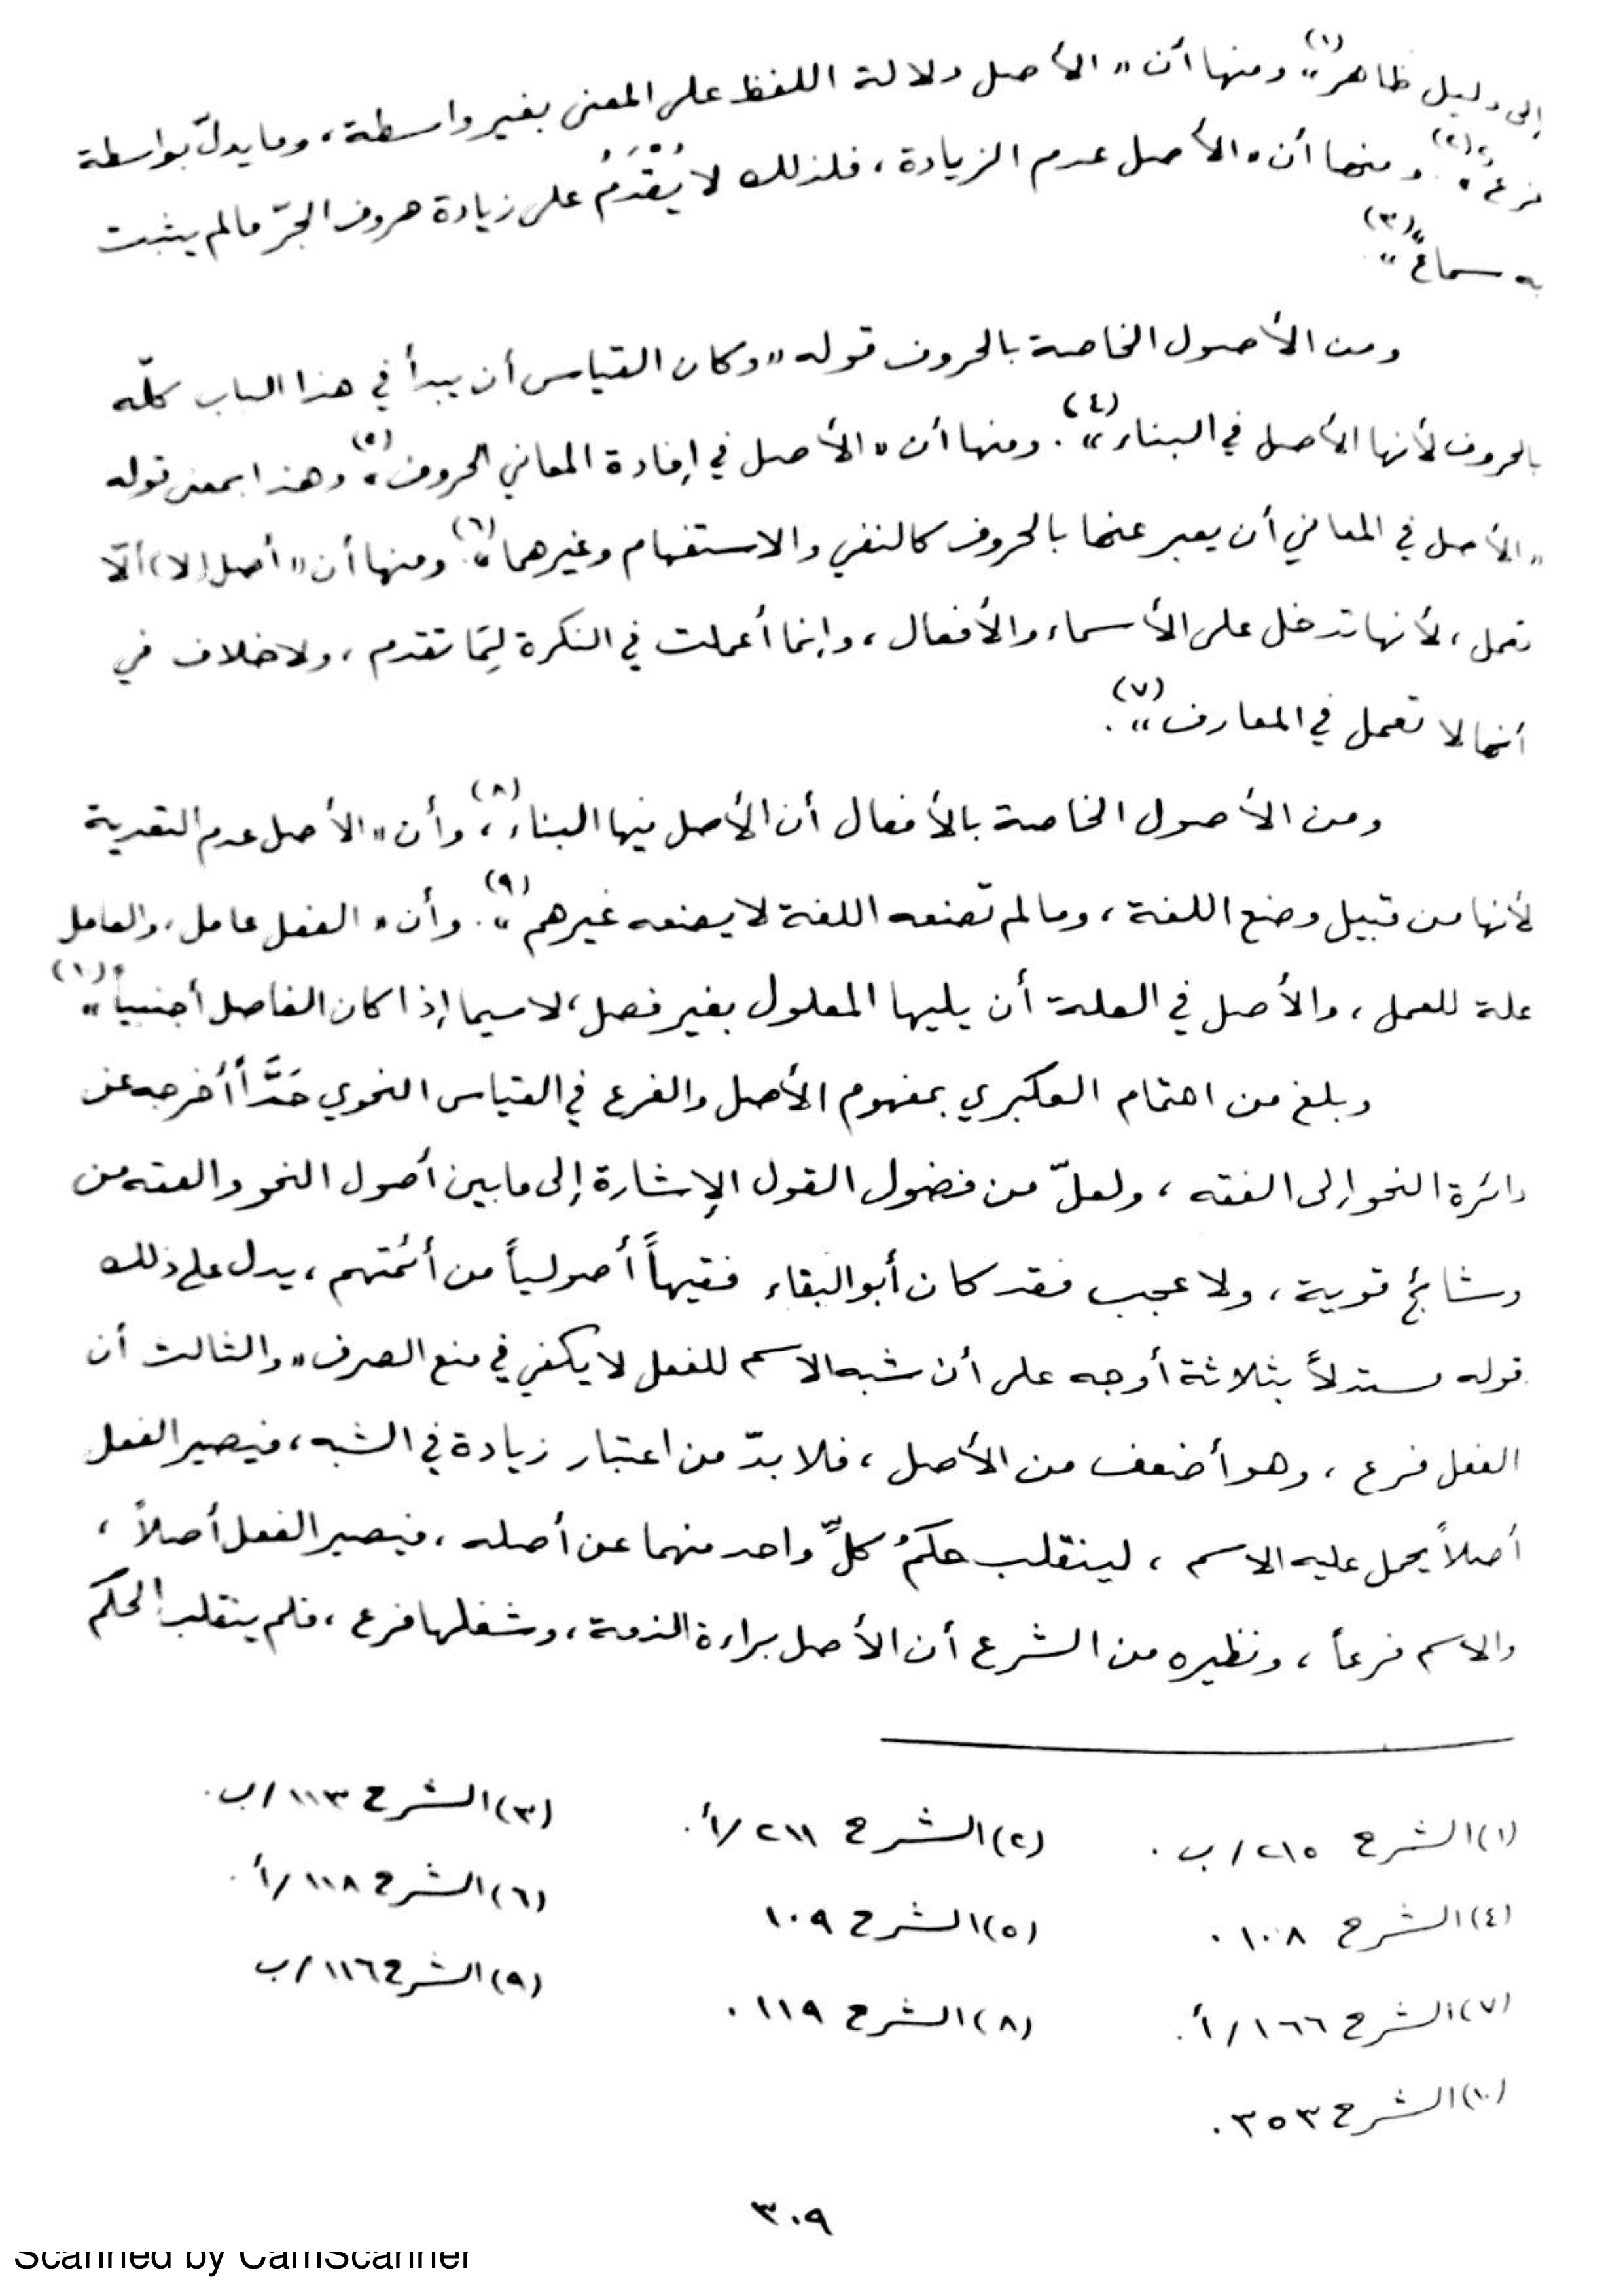 إلى دليل ظاهر»(١) ومنها أن «الأصل دلالة اللفظ على المعنى بغير واسطة، وما يدلّ بواسطة
فرعٌ»(٢). ومنها أن «الأصل عدم الزيادة، فلذلك لا يُقْدَمُ على زيادة حروف الجرّ مالم يثبت
به سماعٌ»(٣).
ومن الأصول الخاصة بالحروف قوله «وكان القياس أن يبدأ في هذا الباب كلّه
بالحروف لأنها الأصل في البناء»(٤). ومنها أن «الأصل في إفادة المعاني الحروف»(٥) وهذا بمعنى قوله
«الأصل في المعاني أن يعبر عنها بالحروف كالنفي والاستفهام وغيرهما»(٦). ومنها أن «أصل (لا) ألّا
تعمل، لأنها تدخل على الأسماء والأفعال، وإنما أعملت في النكرة لِمَا تقدم، ولا خلاف في
أنها لا تعمل في المعارف»(٧).
ومن الأصول الخاصة بالأفعال أن الأصل فيها البناء(٨)، وأن «الأصل عدم التعدية
لأنها من قبيل وضع اللغة، وما لم تضعه اللغة لا يضعه غيرهم»(٩). وأن «الفعل عامل، والعامل
علة للعمل، والأصل في العلة أن يليها المعلول بغير فصل، لاسيما إذا كان الفاصل أجنبياً»(١٠)
وبلغ من اهتمام العكبري بمفهوم الأصل والفرع في القياس النحوي حَدّاً أخرجه عن
دائرة النحو إلى الفقه، ولعلّ من فضول القول الإشارة إلى ما بين أصول النحو والفقه من
وشائج قوية، ولا عجب فقد كان أبو البقاء فقيهاً أصولياً من أئمتهم، يدل على ذلك
قوله مستدلاً بثلاثة أوجه على أن شبه الاسم للفعل لا يكفي في منع الصرف «والثالث أن
الفعل فرع، وهو أضعف من الأصل، فلا بدّ من اعتبار زيادة في الشبه، فيصير الفعل
أصلاً يحمل عليه الاسم، لينقلب حكمُ كلِّ واحد منهما عن أصله، فيصير الفعل أصلاً،
والاسم فرعاً، ونظيره من الشرع أن الأصل براءة الذمة، وشغلها فرع، فلم ينقلب الحكم
(١) الشرح ٢١٥/ب. (٢) الشرح ٢١١/أ. (٣) الشرح ١١٣/ب.
(٤) الشرح ١٠٨. (٥) الشرح ١٠٩ (٦) الشرح ١١٨/أ.
(٧) الشرح ١٦٦/أ. (٨) الشرح ١١٩. (٩) الشرح ١١٦/ب
(١٠) الشرح ٣٥٣.
٣٠٩
Scanned by CamScanner